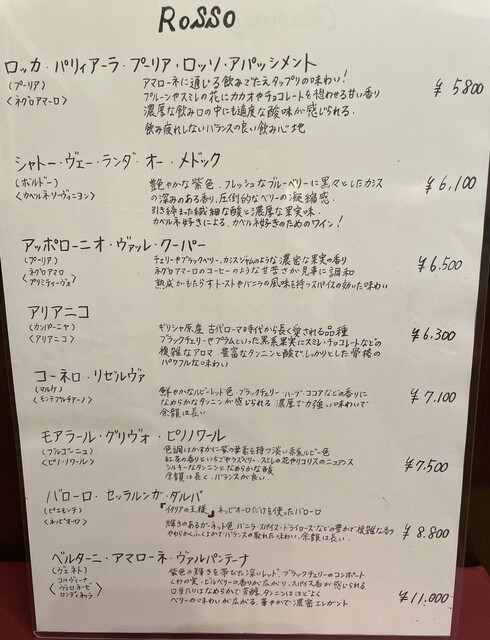 ROSSO
ロッカ・パリィアーラ・プーリア・ロッソ・アパッシメント
(プーリア)
<ネグロアマーロ>
アマローネに通じる飲みごたえタップリの味わい!
プルーンやスミレの花にカカオやチョコレートを想わせる甘い香り
濃厚な飲み口の中にも適度な酸味が感じられる。
飲み疲れしないバランスの良い飲み心地
¥5800
シャトー・ヴェー・ランダ・オー・メドック
(ボルドー)
<カベルネソーヴィニヨン>
艶やかな紫色、フレッシュなブルーベリーに黒々としたカシス
の深みのある香り、圧倒的なベリーの凝縮感。
引き締まった繊細な酸と濃厚な果実味。
カベルネ好きによる、カベルネ好きのためのワイン!
¥6,100
アッポローニオ・ヴァル・クーパー
(プーリア)
ネグロアマロ
<プリミティーヴォ>
チェリーやブラックベリー、カシスジャムのような濃密な果実の香り
ネグロアマーロのコーヒーのような甘苦さが見事に調和
熟成がもたらすトーストやバニラの風味を持つスパイスの効いた味わい
¥6,500
アリアニコ
(カンパーニャ)
<アリアニコ>
ギリシャ原産 古代ローマ時代から長く愛される品種
ブラックチェリーやプラムといった黒系果実にスミレ・チョコレートなどの
複雑なアロマ 豊富なタンニンと酸でしっかりとした骨格の
パワフルな味わい
¥6,300
コーネロ・リゼルヴァ
(マルケ)
<モンテプルチアーノ>
鮮やかなルビーレッド色・ブラックチェリー・ハーブ・ココアなどの香りに
なめらかなタンニンが感じられる 濃厚で力強い味わいで
余韻は長い
¥7,100
モアラール・グリヴォ・ピノノワール
(ブルゴーニュ)
<ピノ・ノワール>
色調はかすかに紫の要素を持つ淡い赤系ルビー色
紅茶の香りといちごやラズベリー・スミレの花やリコリスのニュアンス
シルキーなタンニンとなめらかな酸
余韻は長く・バランスが良い
¥7,500
バローロ・セッラルンガ・ダルバ
(ピエモンテ)
<ネッビオーロ>
『イタリアの王様』ネッビオーロだけを使ったバローロ
輝きのあるガーネット色 バニラ・スパイス・ドライローズなどの豊かで複雑な香り
やわらかくふくよかでバランスの取れた味わい、余韻は長い。
¥8,800
ベルターニ・アマローネ・ヴァルパンテーナ
(ヴェネト)
コルヴィーナ
<ロンディネッラ>
紫色の輝きを帯びた深いレッド、ブラックチェリーのコンポート
くわの実・ビルベリーの香りが広がり、スパイス香が感じられる
口当たりはなめらかで芳醇、タンニンはほどよく
ベリーの味わいが広がる。華やかで濃密エレガント
¥11,000